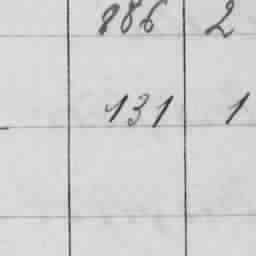 886 2
131 1